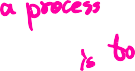 a process
is to